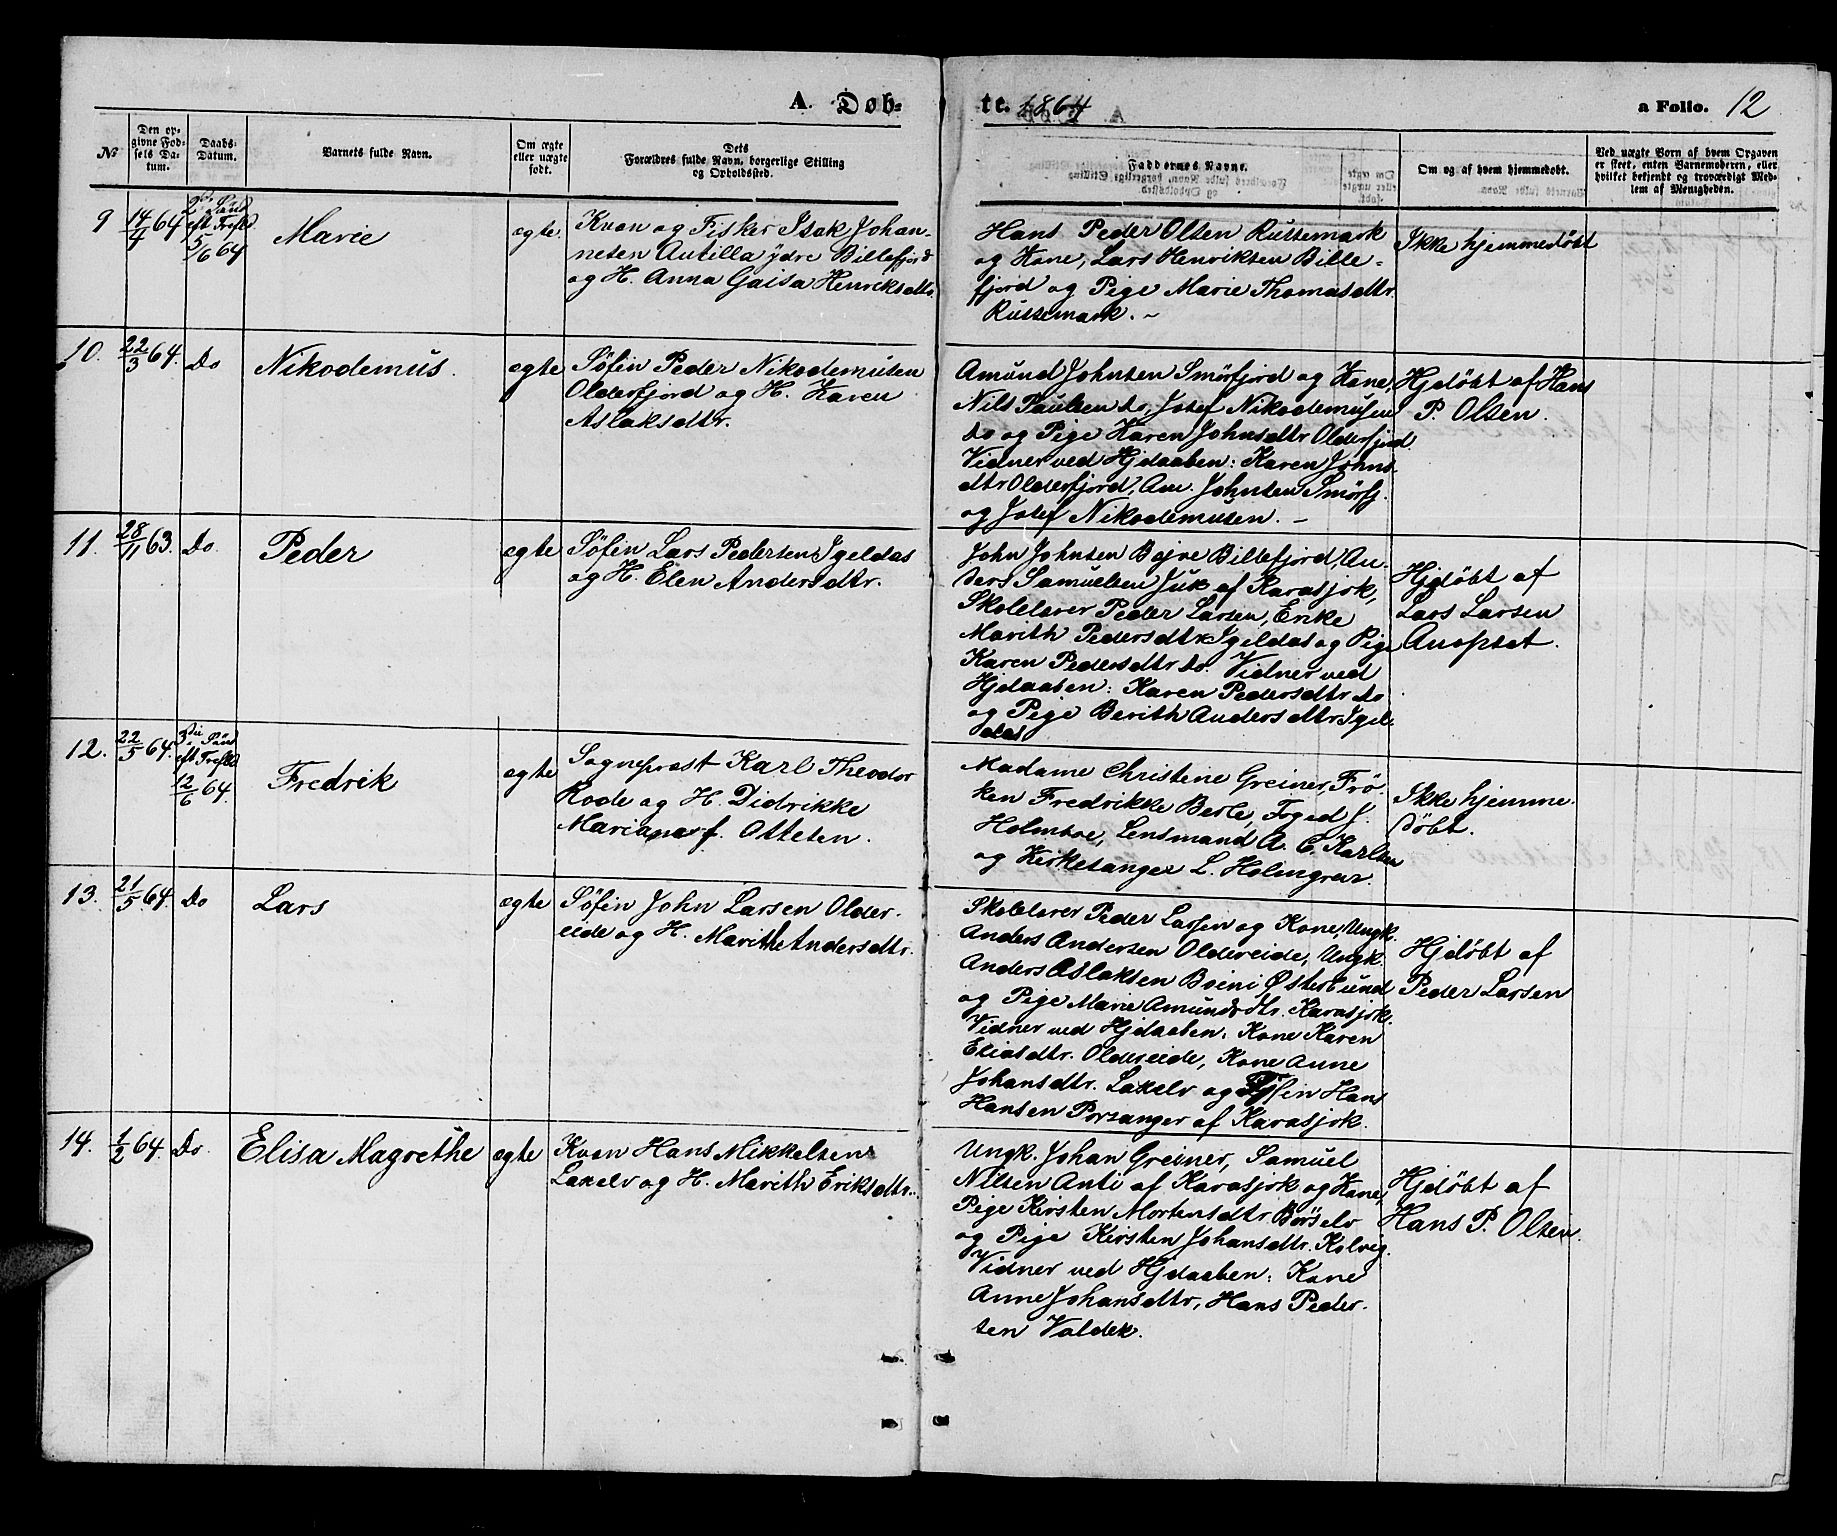 A. Døb-
te. 1864
a Folio. 12
No
Den opgivne Fødsels Datum.
Daabs-Datum.
Barnets fulde Navn.
Om ægte eller uægte født.
Dets Forældres fulde Navn, borgerlige Stilling og Opholdssted.
Faddernes Navne.
Om og af hvem hjemmedøbt.
Ved uægte Born af hvem Opgaven er skeet, enten Barnemoderen, eller hvilket bekjendt og troværdigt Medlem af Menigheden.
9
14/4 64
2den Sønd
eft Trefld
5/6 64
Marie
ægte
Kvæn og Fisker Isak Johan-
nesen Autilla ydre Billefjord
og H. Anna Gaisa Henriksdtr.
Hans Peder Olsen Russemark
og Kone, Lars Henriksen Bille-
fjord og Pige Marie Thomasdtr.
Russemark. ~
Ikke hjemmedøbt
10.
22/3 64.
Do
Nikodemus.
ægte
Søfin Peder Nikodemusen
Olderfjord og H. Karen
Aslaksdtr.
Amund Johnsen Smörfjord og Kone,
Nils Paulsen do, Josef Nikodemusen
do og Pige Karen Johnsdtr Olderfjord.
Vidner ved Hjdaaben: Karen Johns-
dtr Olderfjord, Am. Johnsen Smörfj.
og Josef Nikodemusen. –
Hjdöbt af Hans
P. Olsen.
11.
28/11 63.
Do.
Peder
ægte
Søfin Lars Pedersen Igeldas
og H. Elen Andersdtr.
John Johnsen Bajne Billefjord, An-
ders Samuelsen Juk af Karasjok,
Skolelærer Peder Larsen, Enke
Marith Pedersdtr Igeldas og Pige
Karen Pedersdtr do. Vidner ved
Hjdaaben: Karen Pedersdtr do
og Pige Berith Andersdtr Igel-
das
Hjdöbt af
Lars Larsen
Anopset.
12.
22/5 64.
3die Sønd
eft Trefld
12/6 64.
Fredrik
ægte
Sogneprest Karl Theodor
Rode og H. Didrikke
Mariane f. Ottesen.
Madame Christine Greiner, Frö-
ken Fredrikke Berle, Foged J.
Holmboe, Lensmand A. C. Karlsen
og Kirkesanger L. Holmgren.
Ikke hjemme-
döbt.
13.
21/5 64.
Do
Lars
ægte
Søfin John Larsen Older-
eide og H. Marith Andersdtr.
Skolelærer Peder Larsen og Kone, Ungk.
Anders Andersen Oldereide, Ungk.
Anders Aslaksen Boini Østerbund
og Pige Marie Amundsdtr. Karasjok.
Vidner ved Hjdaaben: Kone Karen
Eliasdtr. Oldereide, Kone Anne
Johansdtr. Laxelv og Fjfin Hans
Hansen Porsanger af Karasjok.
Hjdöbt af
Peder Larsen
14.
1/2 64.
Do
Elisa Magrethe
ægte
Kvæn Hans Mikkelsen
Laxelv og H. Marith Eriksdtr.
Ungk. Johan Greiner, Samuel
Nilsen Anti af Karasjok og Kone,
Pige Kirsten Mortensdtr Börselv
og Pige Kirsten Johansdtr. Kolvig.
Vidner ved Hjdaaben: Kone
Anne Johansdtr, Hans Peder-
sen Valdek.
Hjdöbt af
Hans P. Olsen.